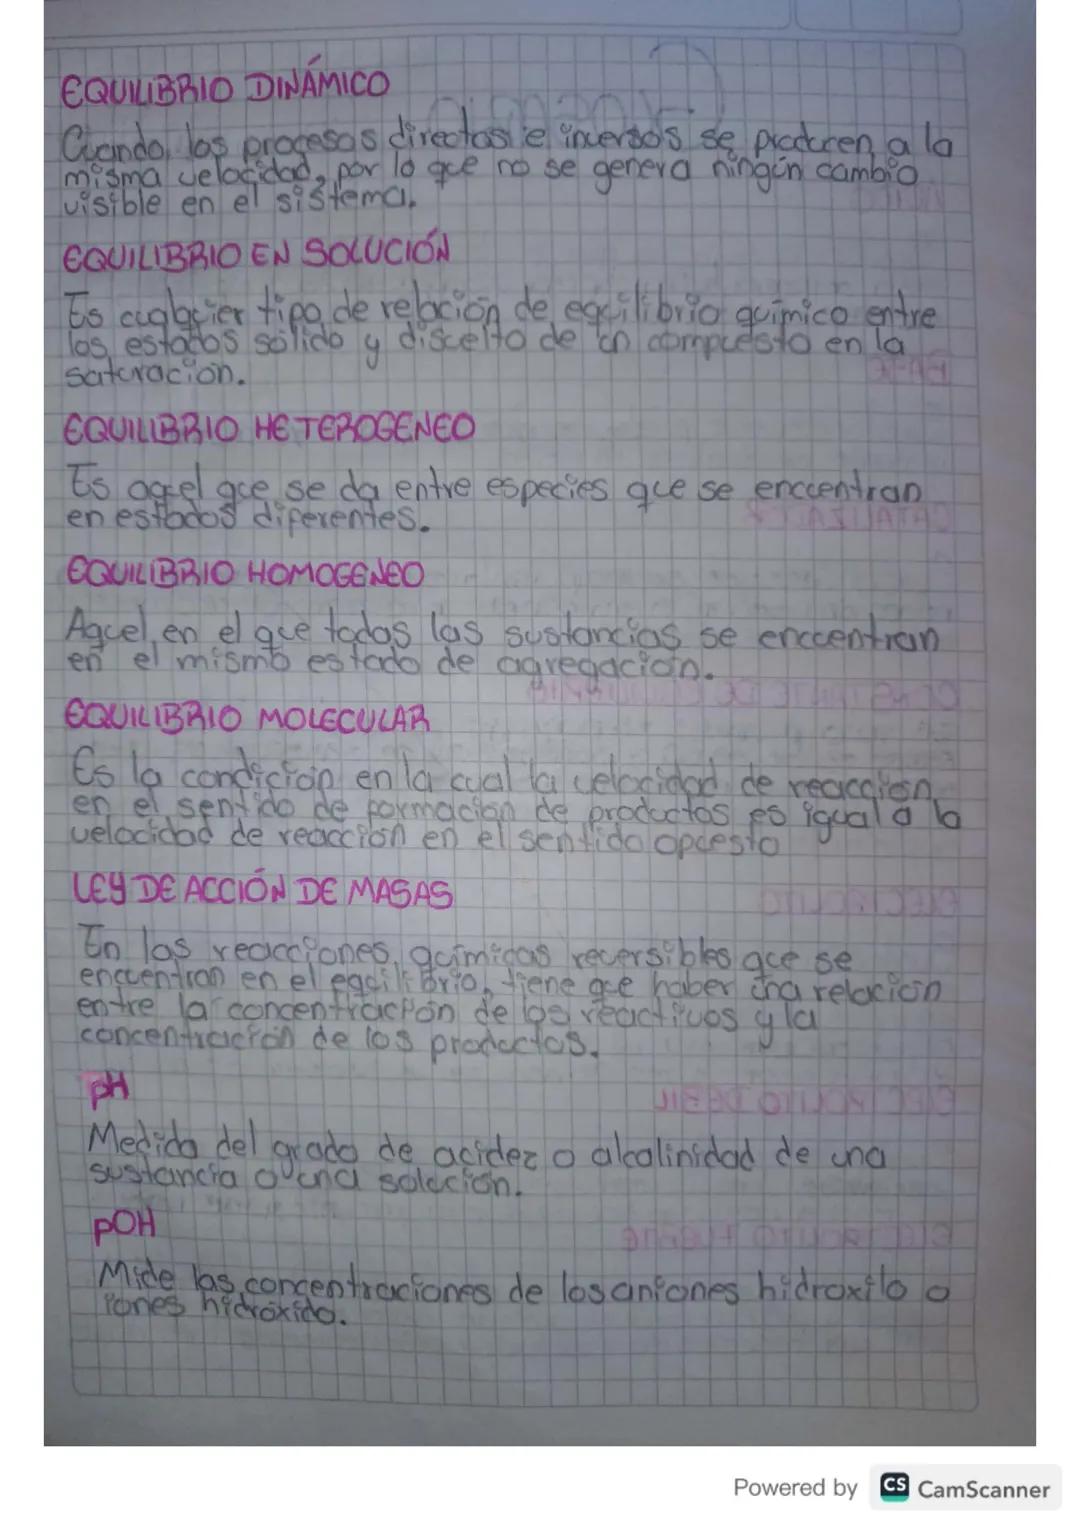 EQUILIBRIO DINÁMICO
Cuando los procesos directos e inversos se producen a la
misma velocidad, por lo que no se genera ningún cambio
visible en el sistema.
EQUILIBRIO EN SOLUCIÓN
Es cualquier tipo de relación de equilibrio químico entre
los estados sólido y disuelto de un compuesto en la
saturación.
EQUILIBRIO HETEROGENEO
Es aquel que se da entre especies que se encuentran
en estados diferentes.
EQUILIBRIO HOMOGENEO
Aquel en el que todas las sustancias se encuentran
en el mismo estado de agregación.
EQUILIBRIO MOLECULAR
Es la condición en la cual la velocidad de reacción
en el sentido de formación de productos es igual a la
velocidad de reacción en el sentido opuesto
LEY DE ACCIÓN DE MASAS
En las reacciones químicas reversibles que se
encuentran en el equilibrio, tiene que haber una relación
entre la concentración de los reactivos y la
concentración de los productos.
pH
Medida del grado de acidez o alcalinidad de una
sustancia o una solución.
pOH
Mide las concentraciones de los aniones hidroxilo o
iones hidróxido.
Powered by CS CamScanner